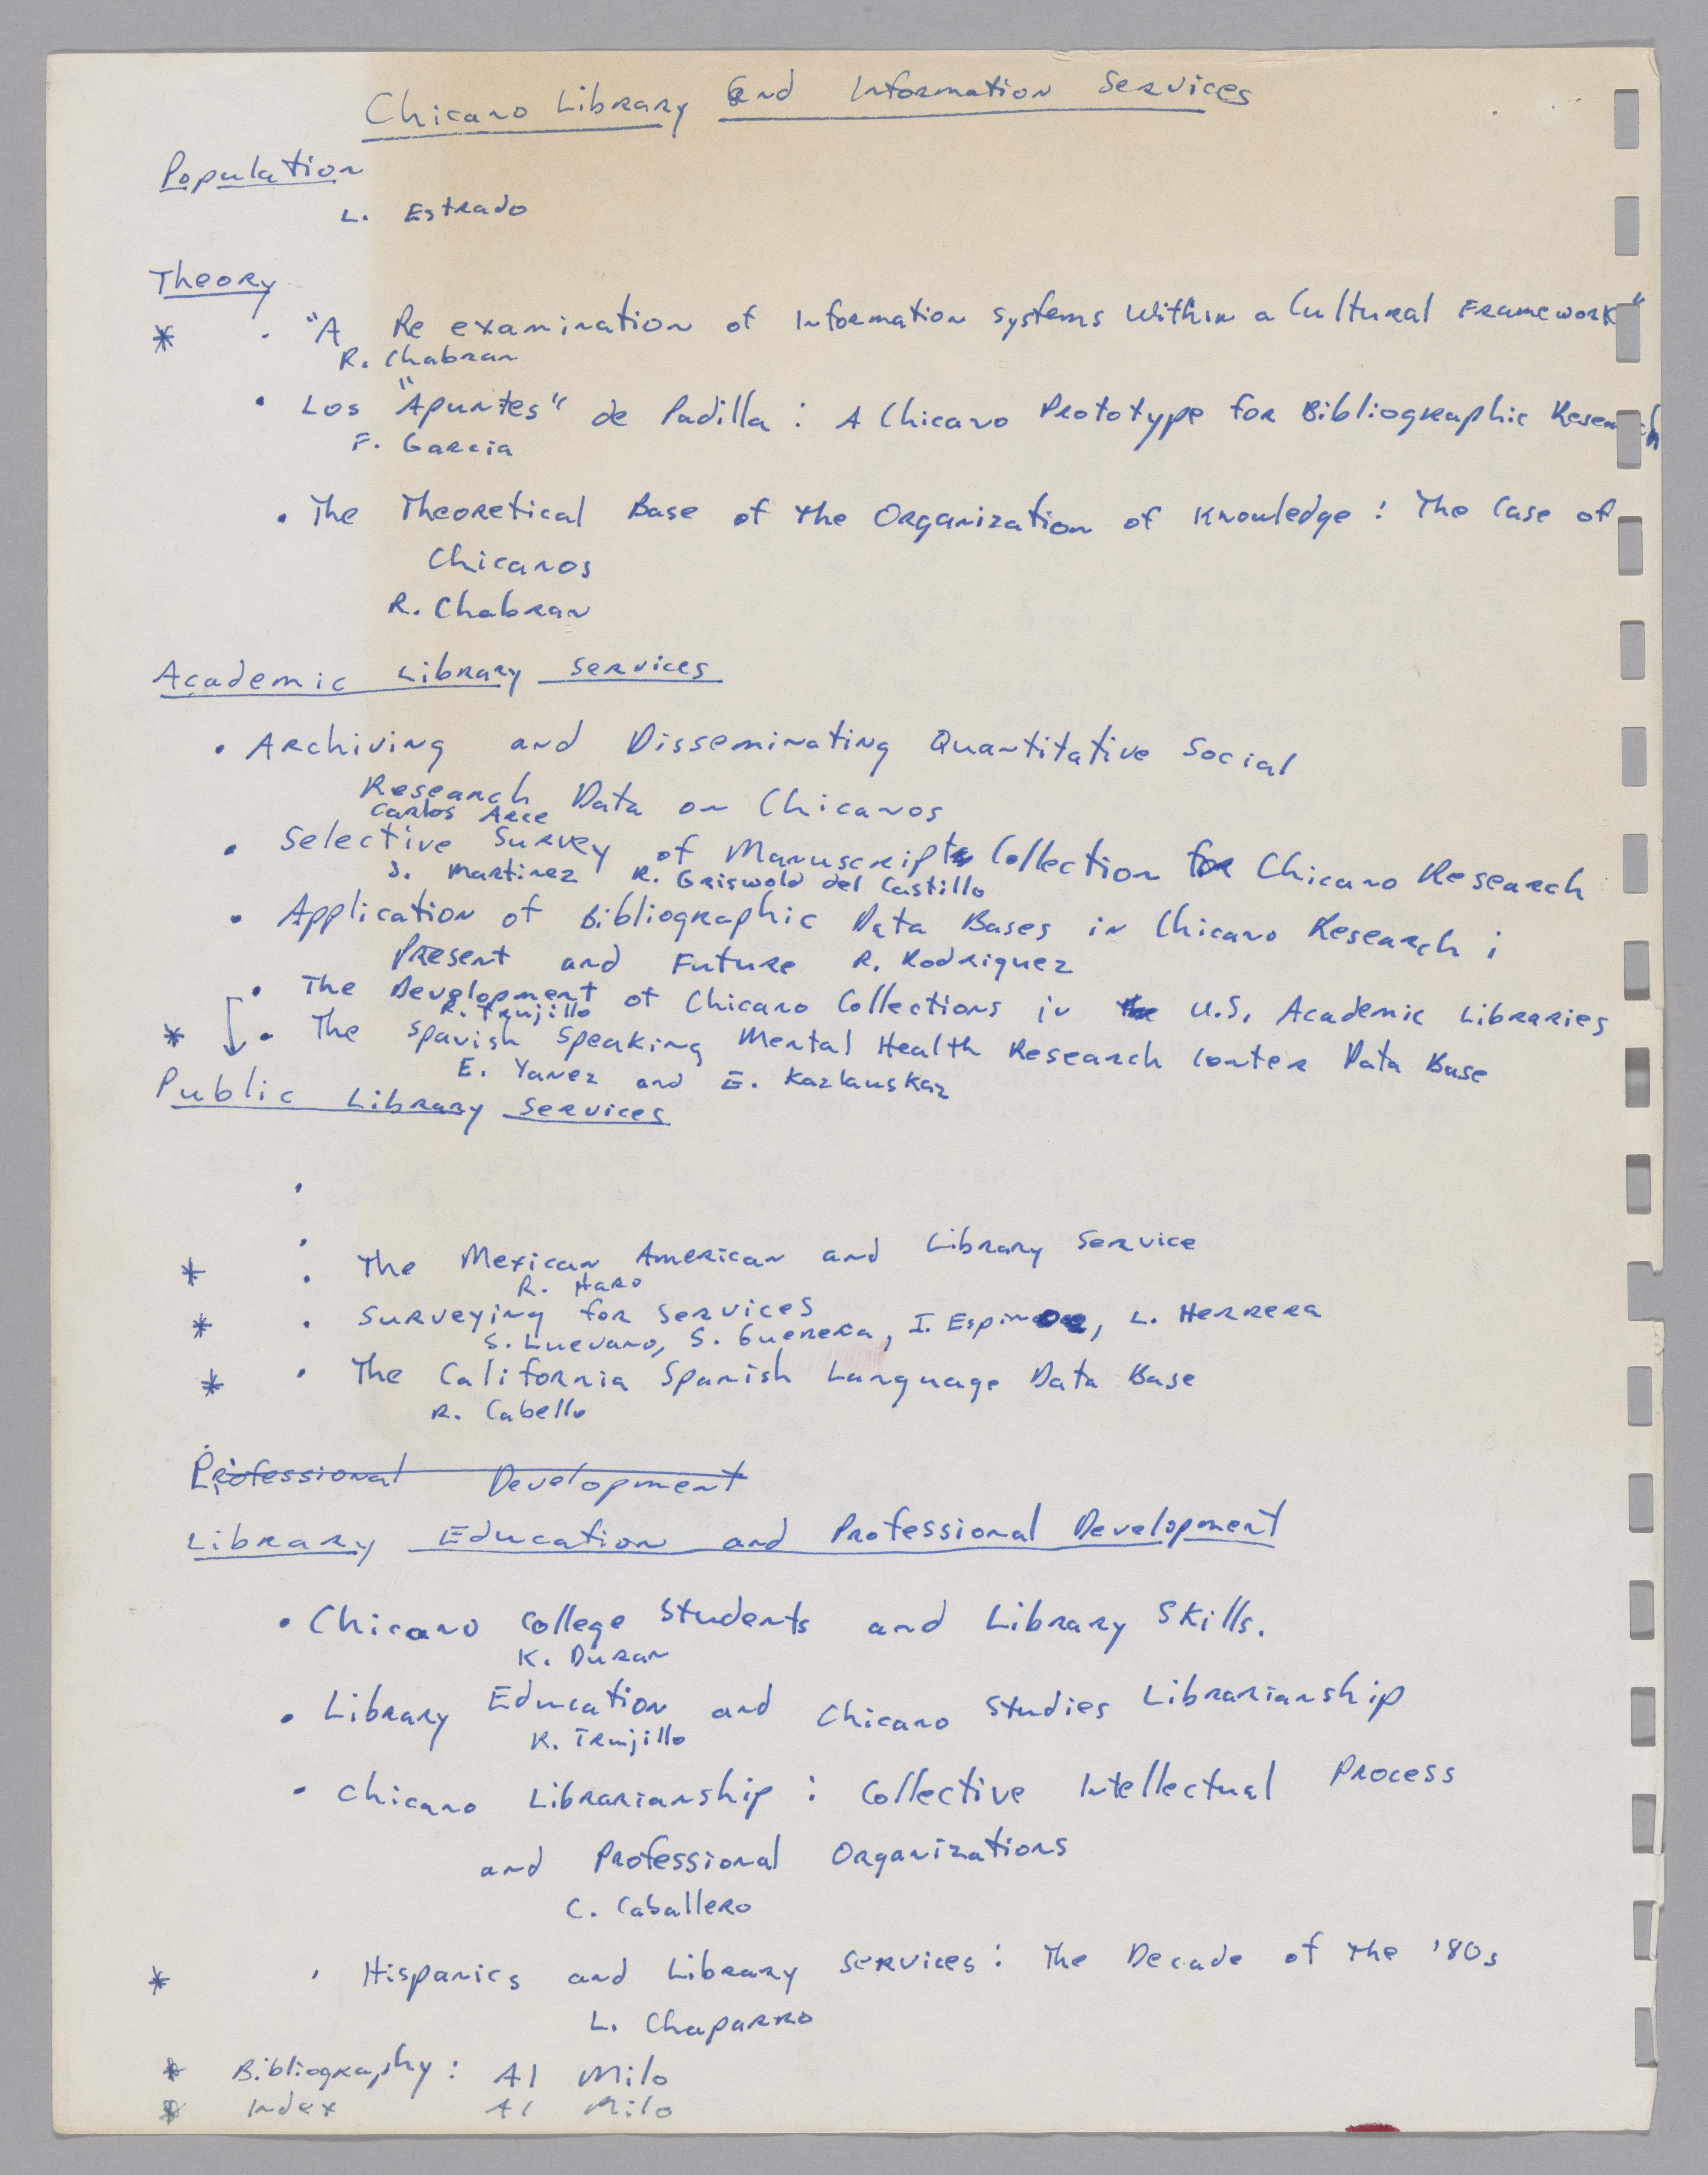 Chicano Library and Information Services
Population
L. Estrado
Theory
* · "A Re examination of Information Systems Within a Cultural Framework"
R. Chabran
· Los "Apuntes" de Padilla : A Chicano Prototype for Bibliographic Research
F. Garcia
· The Theoretical Base of the Organization of Knowledge : The Case of
Chicanos
R. Chabran
Academic Library Services
· Archiving and Disseminating Quantitative Social
Research Data on Chicanos
Carlos Arce
· Selective Survey of Manuscript Collection for Chicano Research
J. Martinez R. Griswold del Castillo
· Application of Bibliographic Data Bases in Chicano Research ;
Present and Future R. Rodriguez
· The Development of Chicano Collections in the U.S. Academic Libraries
R. Trujillo
* ↓ · The Spanish Speaking Mental Health Research Center Data Base
E. Yanez and E. Kazlauskaz
Public Library Services
·
·
* · The Mexican American and Library Service
R. Haro
* · Surveying for Services
S. Luevano, S. Guerera, I. Espinoza, L. Herrera
* · The California Spanish Language Data Base
R. Cabello
Professional Development
Library Education and Professional Development
· Chicano College Students and Library Skills.
K. Duran
· Library Education and Chicano Studies Librarianship
R. Trujillo
· Chicano Librarianship : Collective Intellectual Process
and Professional Organizations
C. Caballero
* · Hispanics and Library Services : The Decade of the '80s
L. Chaparro
* Bibliography : Al Milo
* Index Al Milo